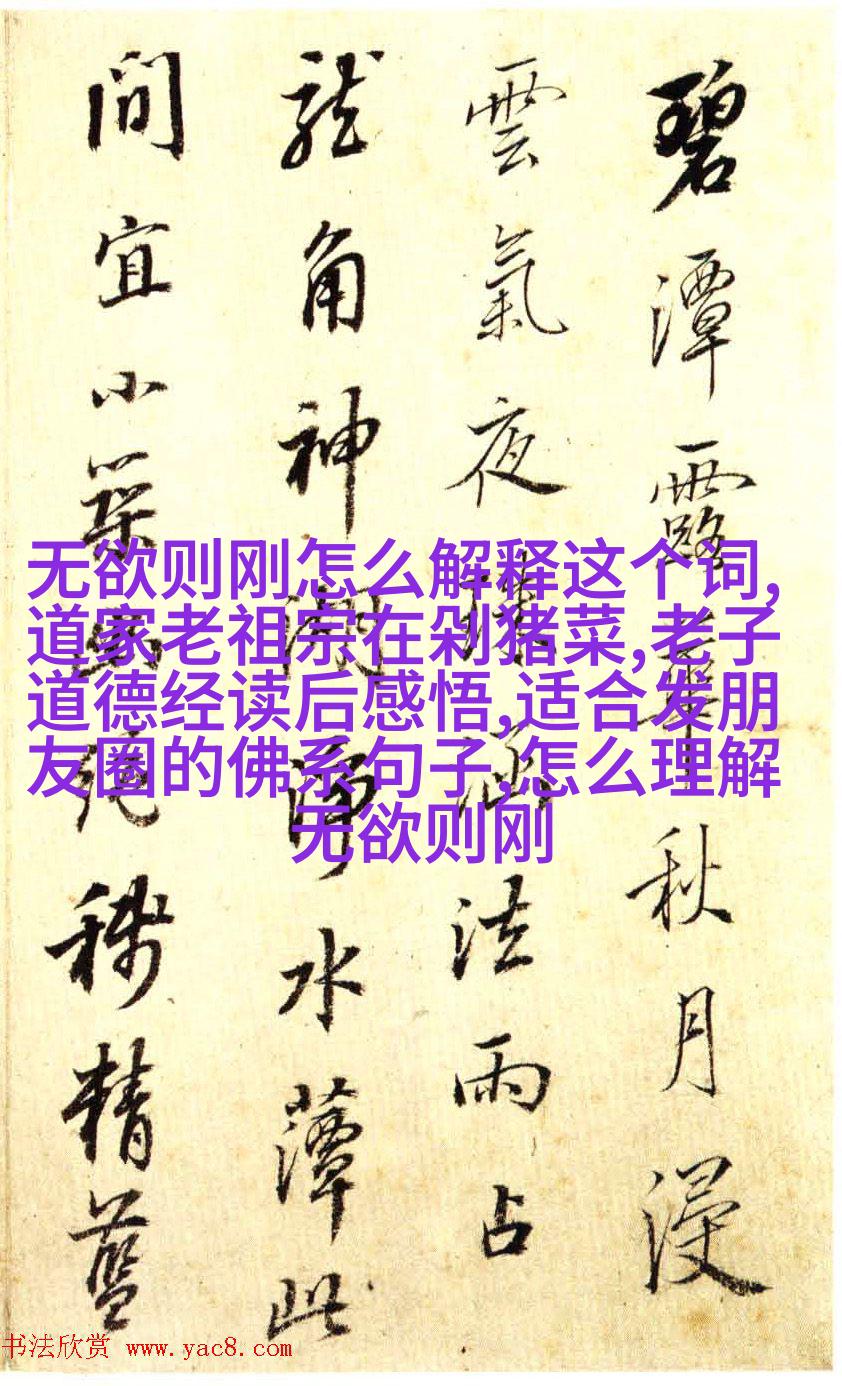 碧潭露華秋月浸
雲氣夜涵法雨占
龍角神水藫此
間宜小築稱精藍
无欲则刚怎么解释这个词,
道家老祖宗在剁猪菜,老子
道德经读后感悟,适合发朋
友圈的佛系句子,怎么理解
无欲则刚
书法欣赏 www.yac8.com